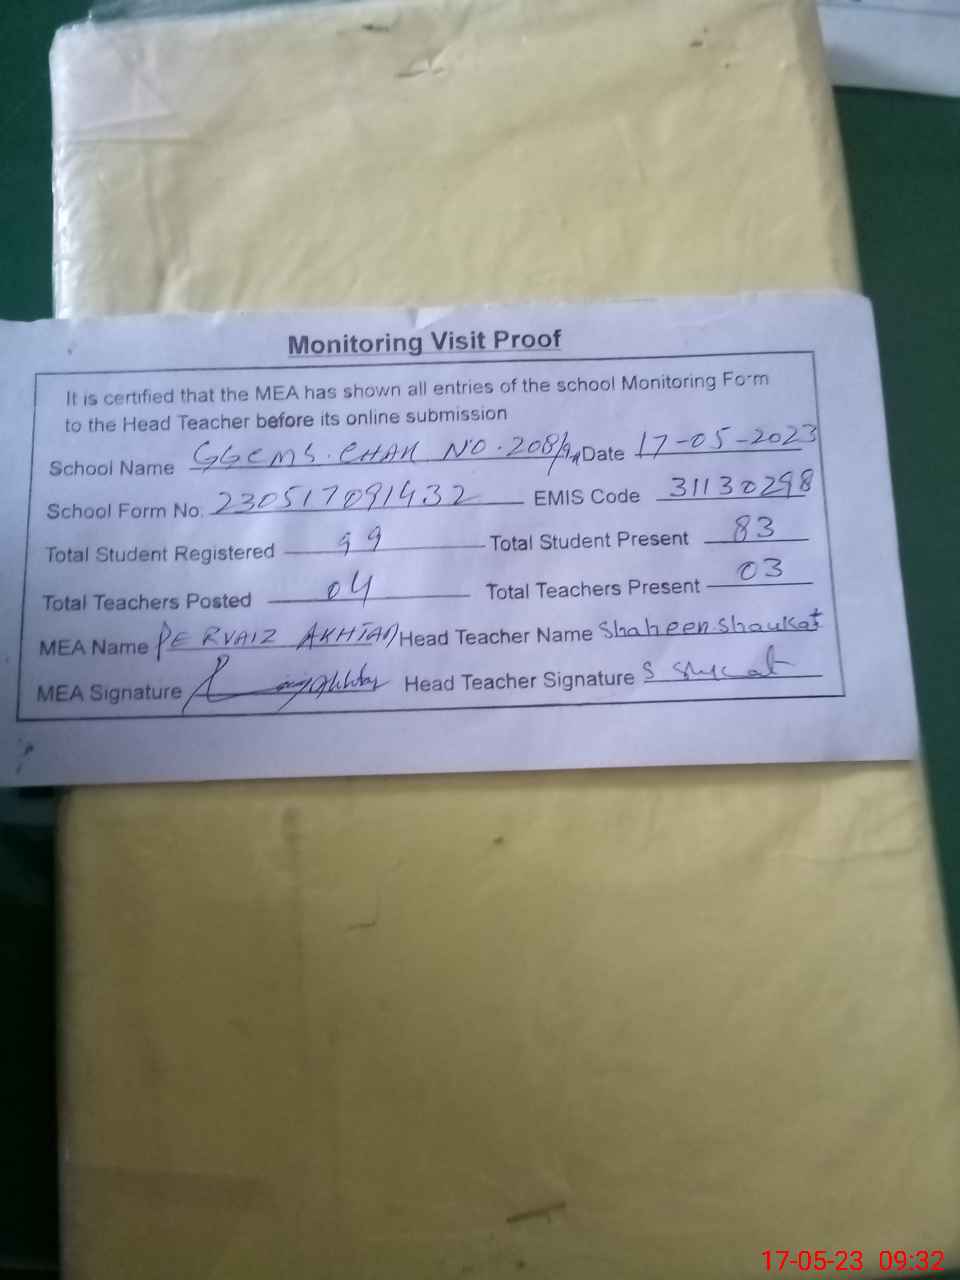 Monitoring Visit Proof
It is certified that the MEA has shown all entries of the school Monitoring Form
to the Head Teacher before its online submission
School Name GGCMS. CHAK NO. 208/9 Date 17-05-2023
School Form No. 230517091432 EMIS Code 31130298
Total Student Registered 99 Total Student Present 83
Total Teachers Posted 04 Total Teachers Present 03
MEA Name PERVAIZ AKHTAR Head Teacher Name Shaheen Shaukat
MEA Signature Head Teacher Signature
17-05-23 09:32